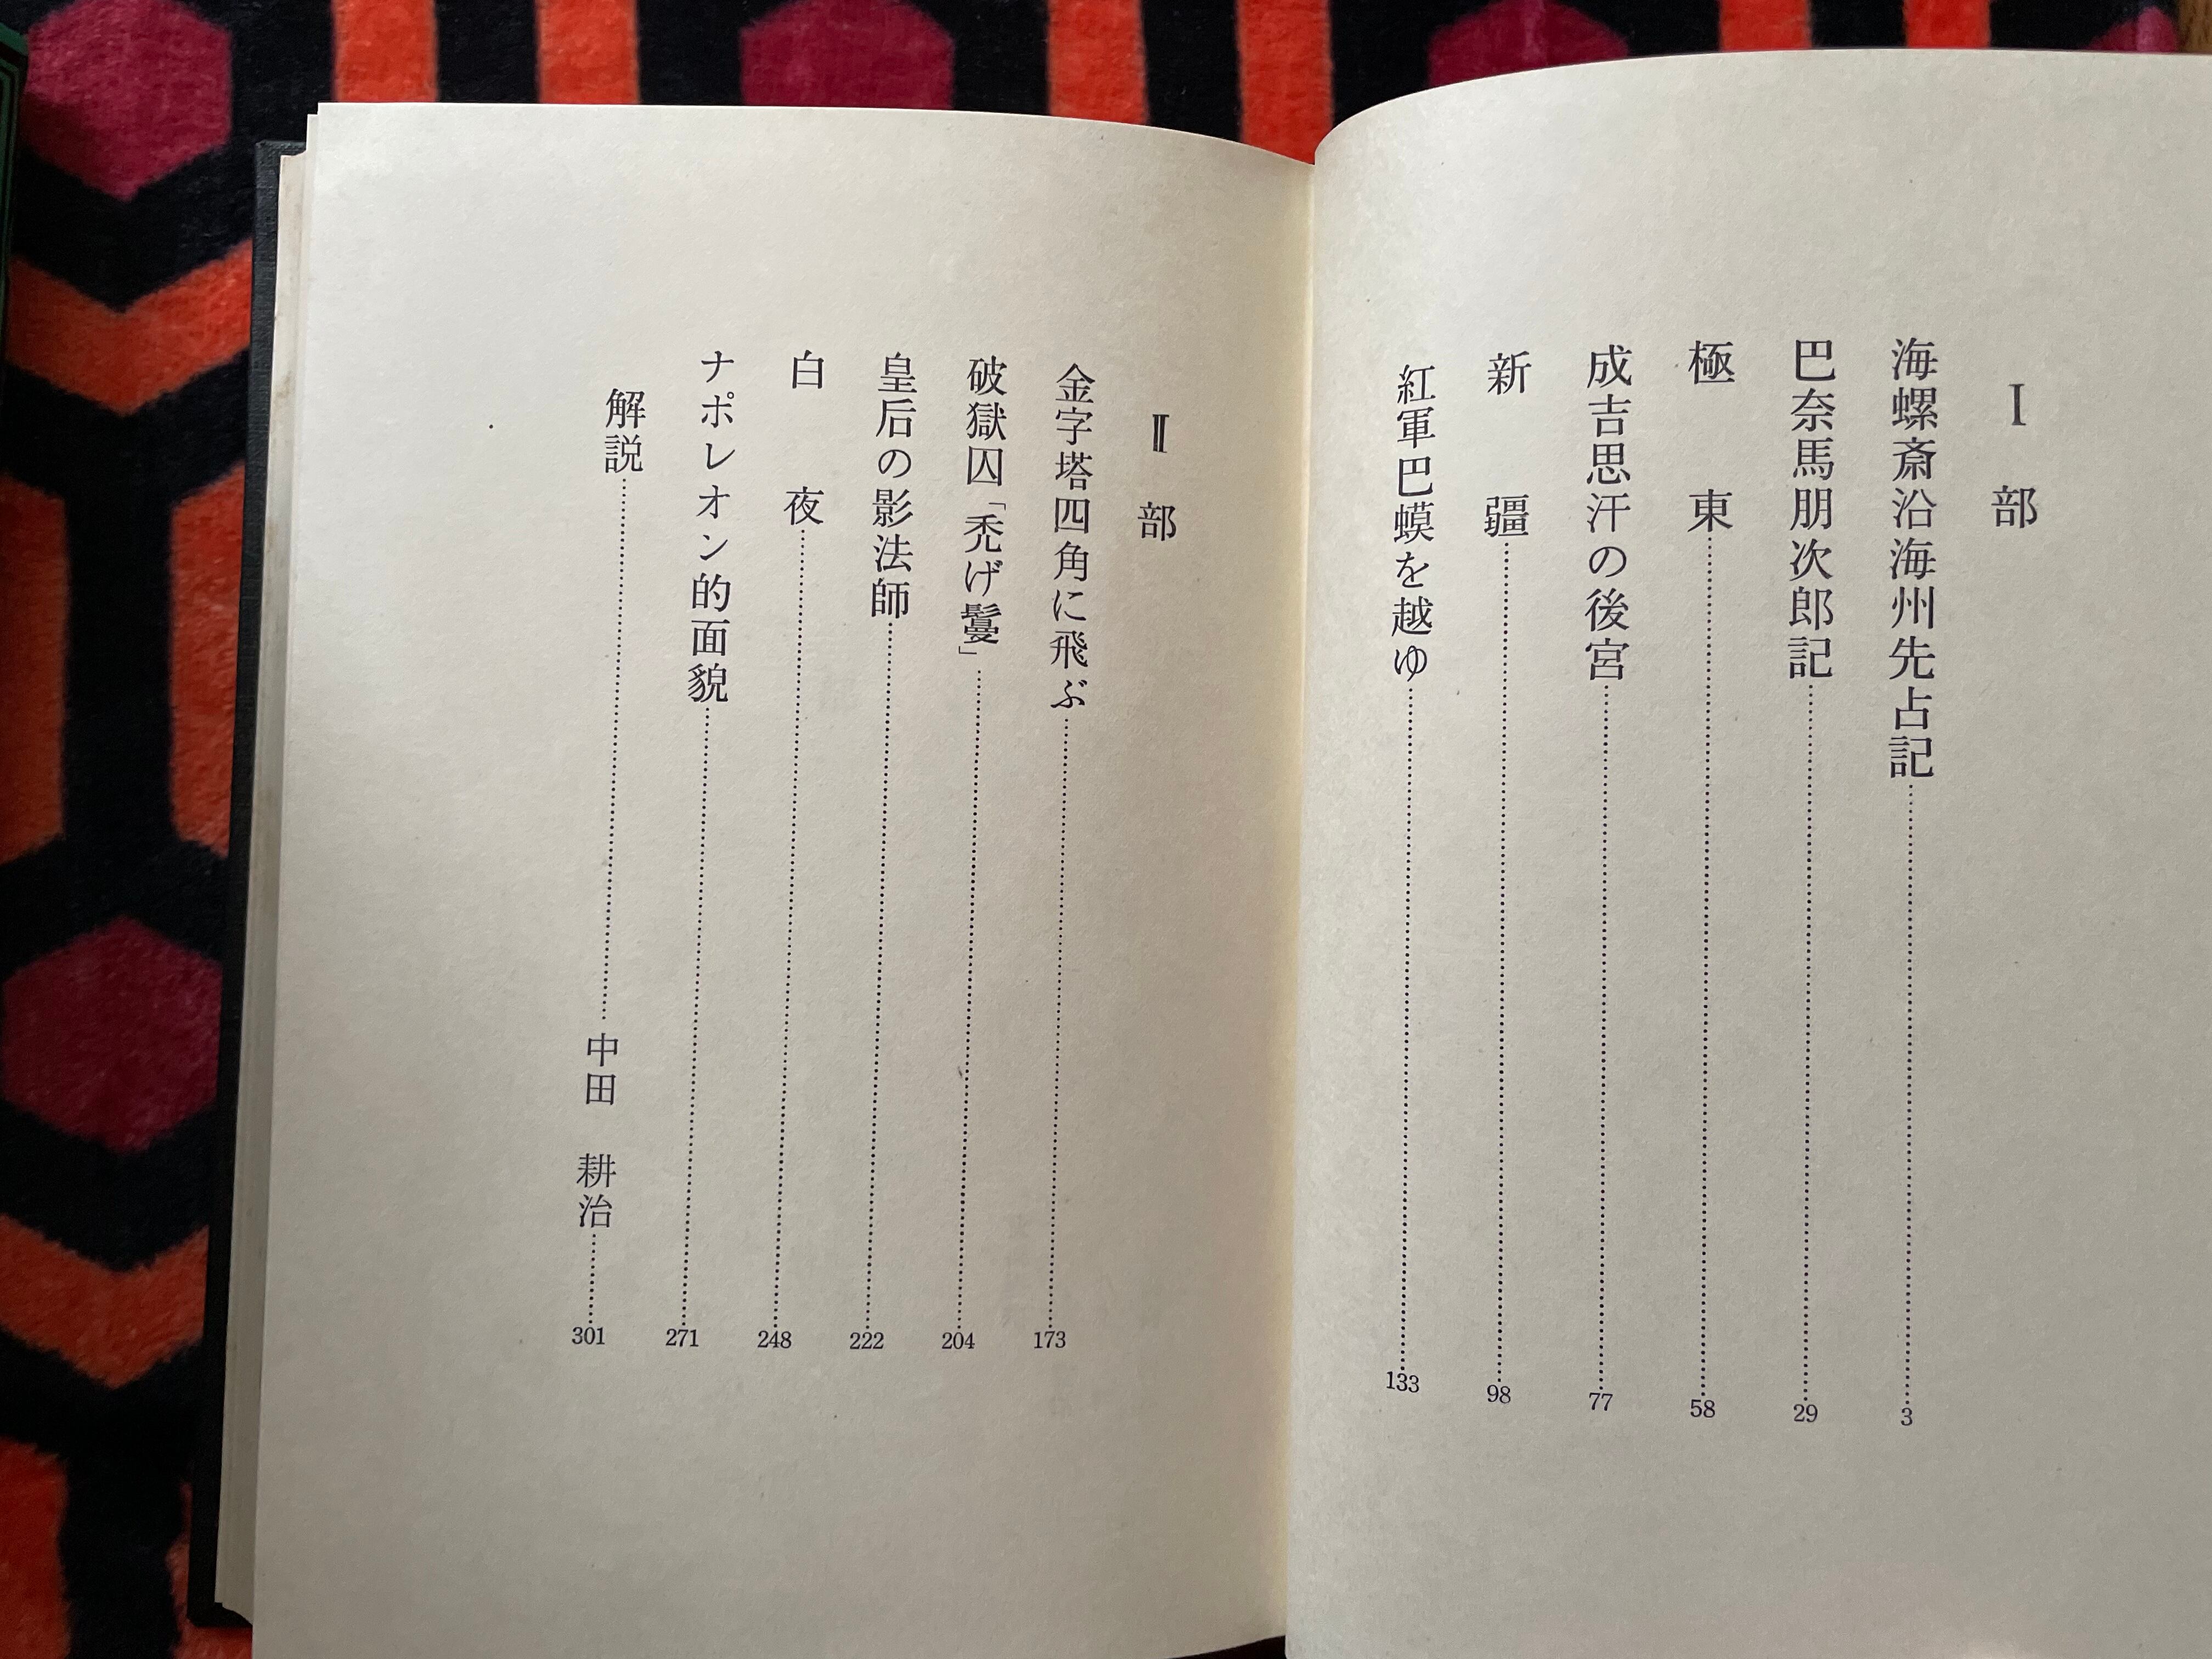 Ⅰ部
海螺斎沿海州先占記……3
巴奈馬朋次郎記……29
極東……58
成吉思汗の後宮……77
新疆……98
紅軍巴蟆を越ゆ……133
Ⅱ部
金字塔四角に飛ぶ……173
破獄囚「禿げ鬘」……204
皇后の影法師……222
白夜……248
ナポレオン的面貌……271
解説……中田 耕治……301